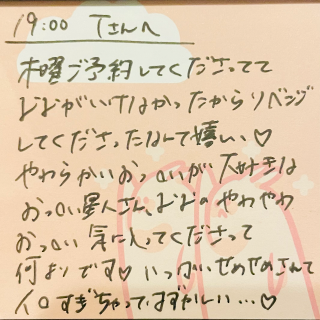 19:00 Tさんへ
木曜ご予約してくださってて
いけなかったからリベンジ
してくださったなんて嬉しい♡
やわらかいおっぱいが大好きな
おっぱい星人さん、のやわやわ
おっぱい気に入ってくださって
何よりです♡いっぱいせめせめさんて
イロすぎちゃってはずかしい…♡